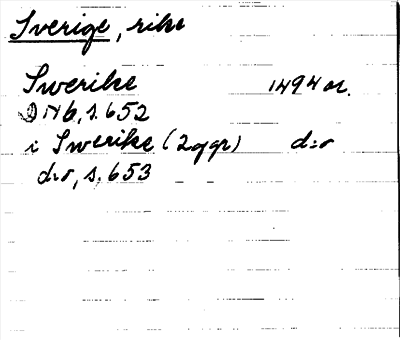 Sverige, rike
Swerike 1494 or.
DN6, s. 652
i Swerike (2 ggr) d:o
d:o, s. 653